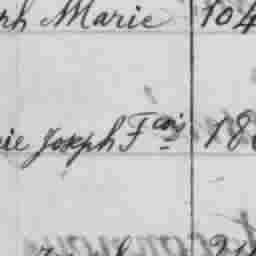 rh Marie 104
ie Joseph Fçois 18